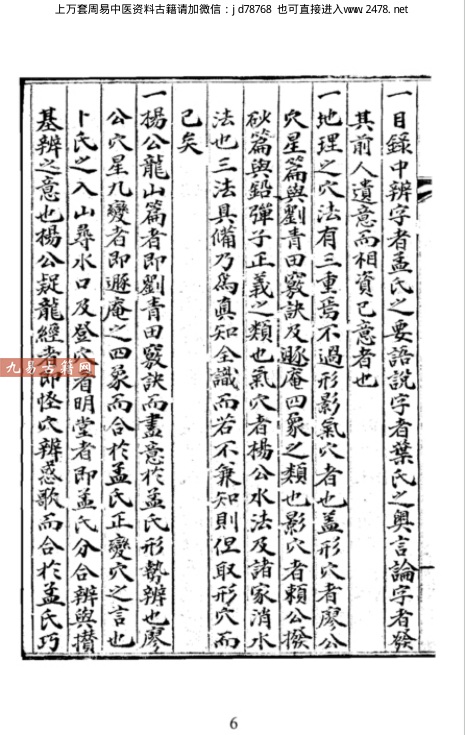 上万套周易中医资料古籍请加微信：jd78768 也可直接进入www.2478.net
一目錄中辨字者孟氏之要語說字者葉氏之奧言論字者發
其前人遺意而相資己意者也
一地理之穴法有三重焉不過形影氣穴者也盖形穴者廖公
穴星篇與劉青田竅訣及遯庵四象之類也影穴者賴公撥
砂篇與鉛彈子正義之類也氣穴者楊公水法及諸家消水
法也三法具備乃為真知全識而若不兼知則但取形穴而
已矣
一楊公龍山篇者即劉青田竅訣而盡意於孟氏形勢辨也廖
公穴星九變者即遯庵之四象而合於孟氏正變穴之言也
卜氏之入山尋水口及登穴看明堂者即孟氏分合辨與攅
基辨之意也楊公疑龍經者即怪穴辨惑歌而合於孟氏巧
九易古籍网
6